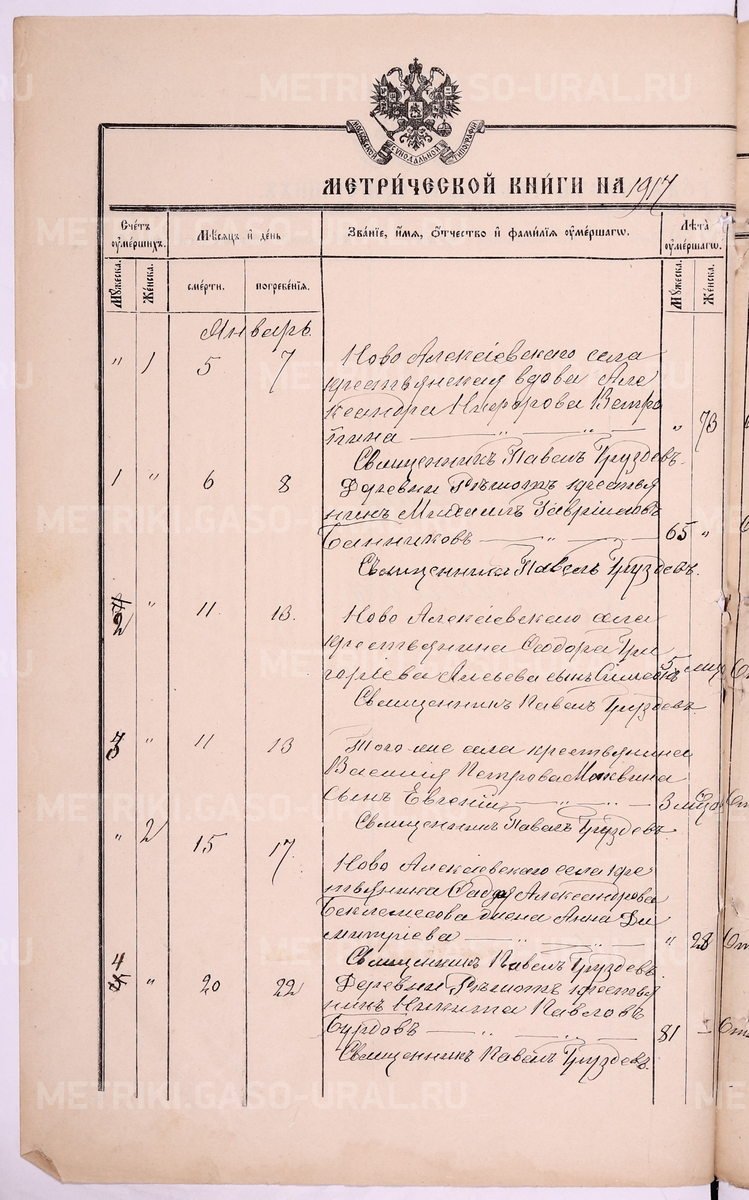 МЕТРИЧЕСКОЙ КНИГИ НА 1917
Счетъ умершихъ.
Мужеска.
Женска.
Мѣсяцъ и день
смерти.
погребенія.
Званіе, имя, отчество и фамилія умершаго.
Лѣта умершаго.
Мужеска.
Женска.
Январь.
" 1 5 7 Ново Алексіевскаго села
крестьянская вдова Але
ксандра
гина " 73
Священникъ Павелъ Груздевъ.
1 " 6 8 Деревни Рѣшотъ крестья
нинъ Михаилъ Гавріиловъ
Банниковъ 65 "
Священникъ Павелъ Груздевъ.
2 " 11 13. Ново Алексіевскаго села
крестьянина Ѳеодора Гри
горіева сынъ 5 мцо
Священникъ Павелъ Груздевъ.
3 " 11 13 Того же села крестьянина
Василія Петрова сынъ Евгеній 3 мцо
Священникъ Павелъ Груздевъ
" 2 15 17. Ново Алексіевскаго села кре
стьянина Александрова
Беклемесова жена Анна Ди
митріева " 28
Священникъ Павелъ Груздевъ.
4 " 20 22 Деревни Рѣшотъ крестья
нинъ Никита Павловъ
Бурдовъ 81 –
Священникъ Павелъ Груздевъ.
METRIKI.GASO-URAL.RU